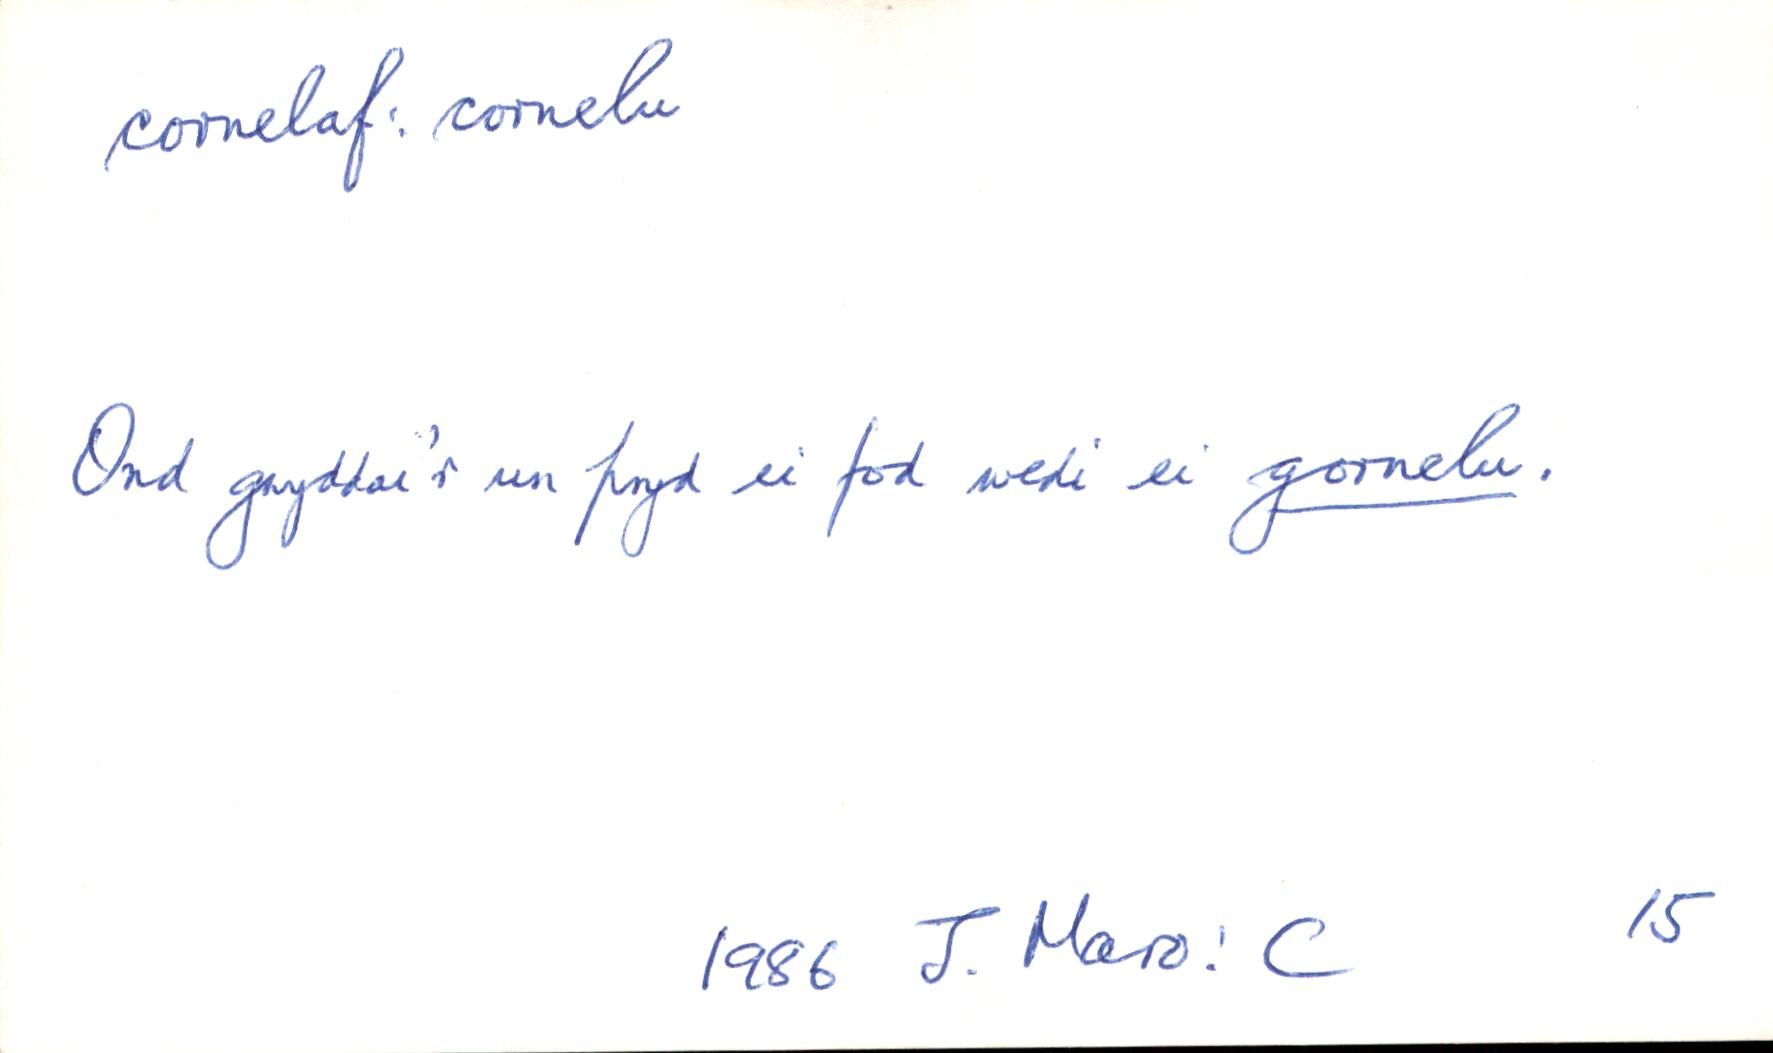 cornelaf: cornelu
Ond gwyddai'r un pryd ei fod wedi ei gornelu.
1986 J. Maro: C 15